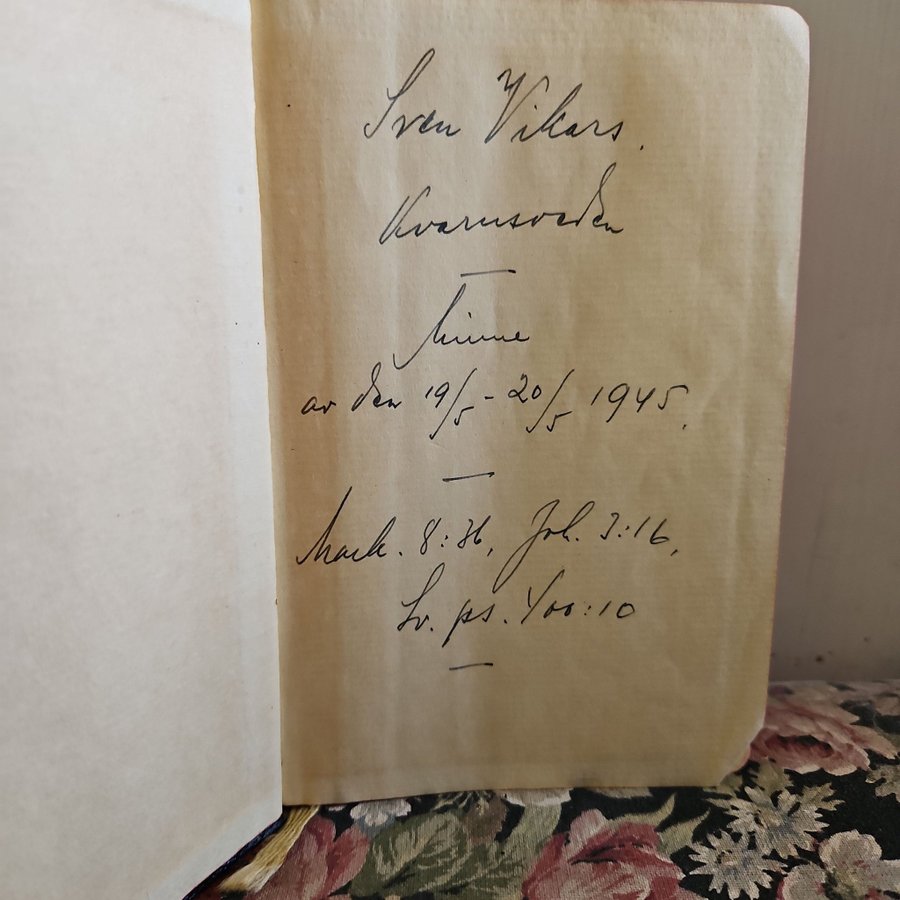 Sven Vikars.
Kvarnsveden
Minne
av den 19/5 - 20/5 1945.
Mark. 8:36, Joh. 3:16,
Sv. ps. 400:10